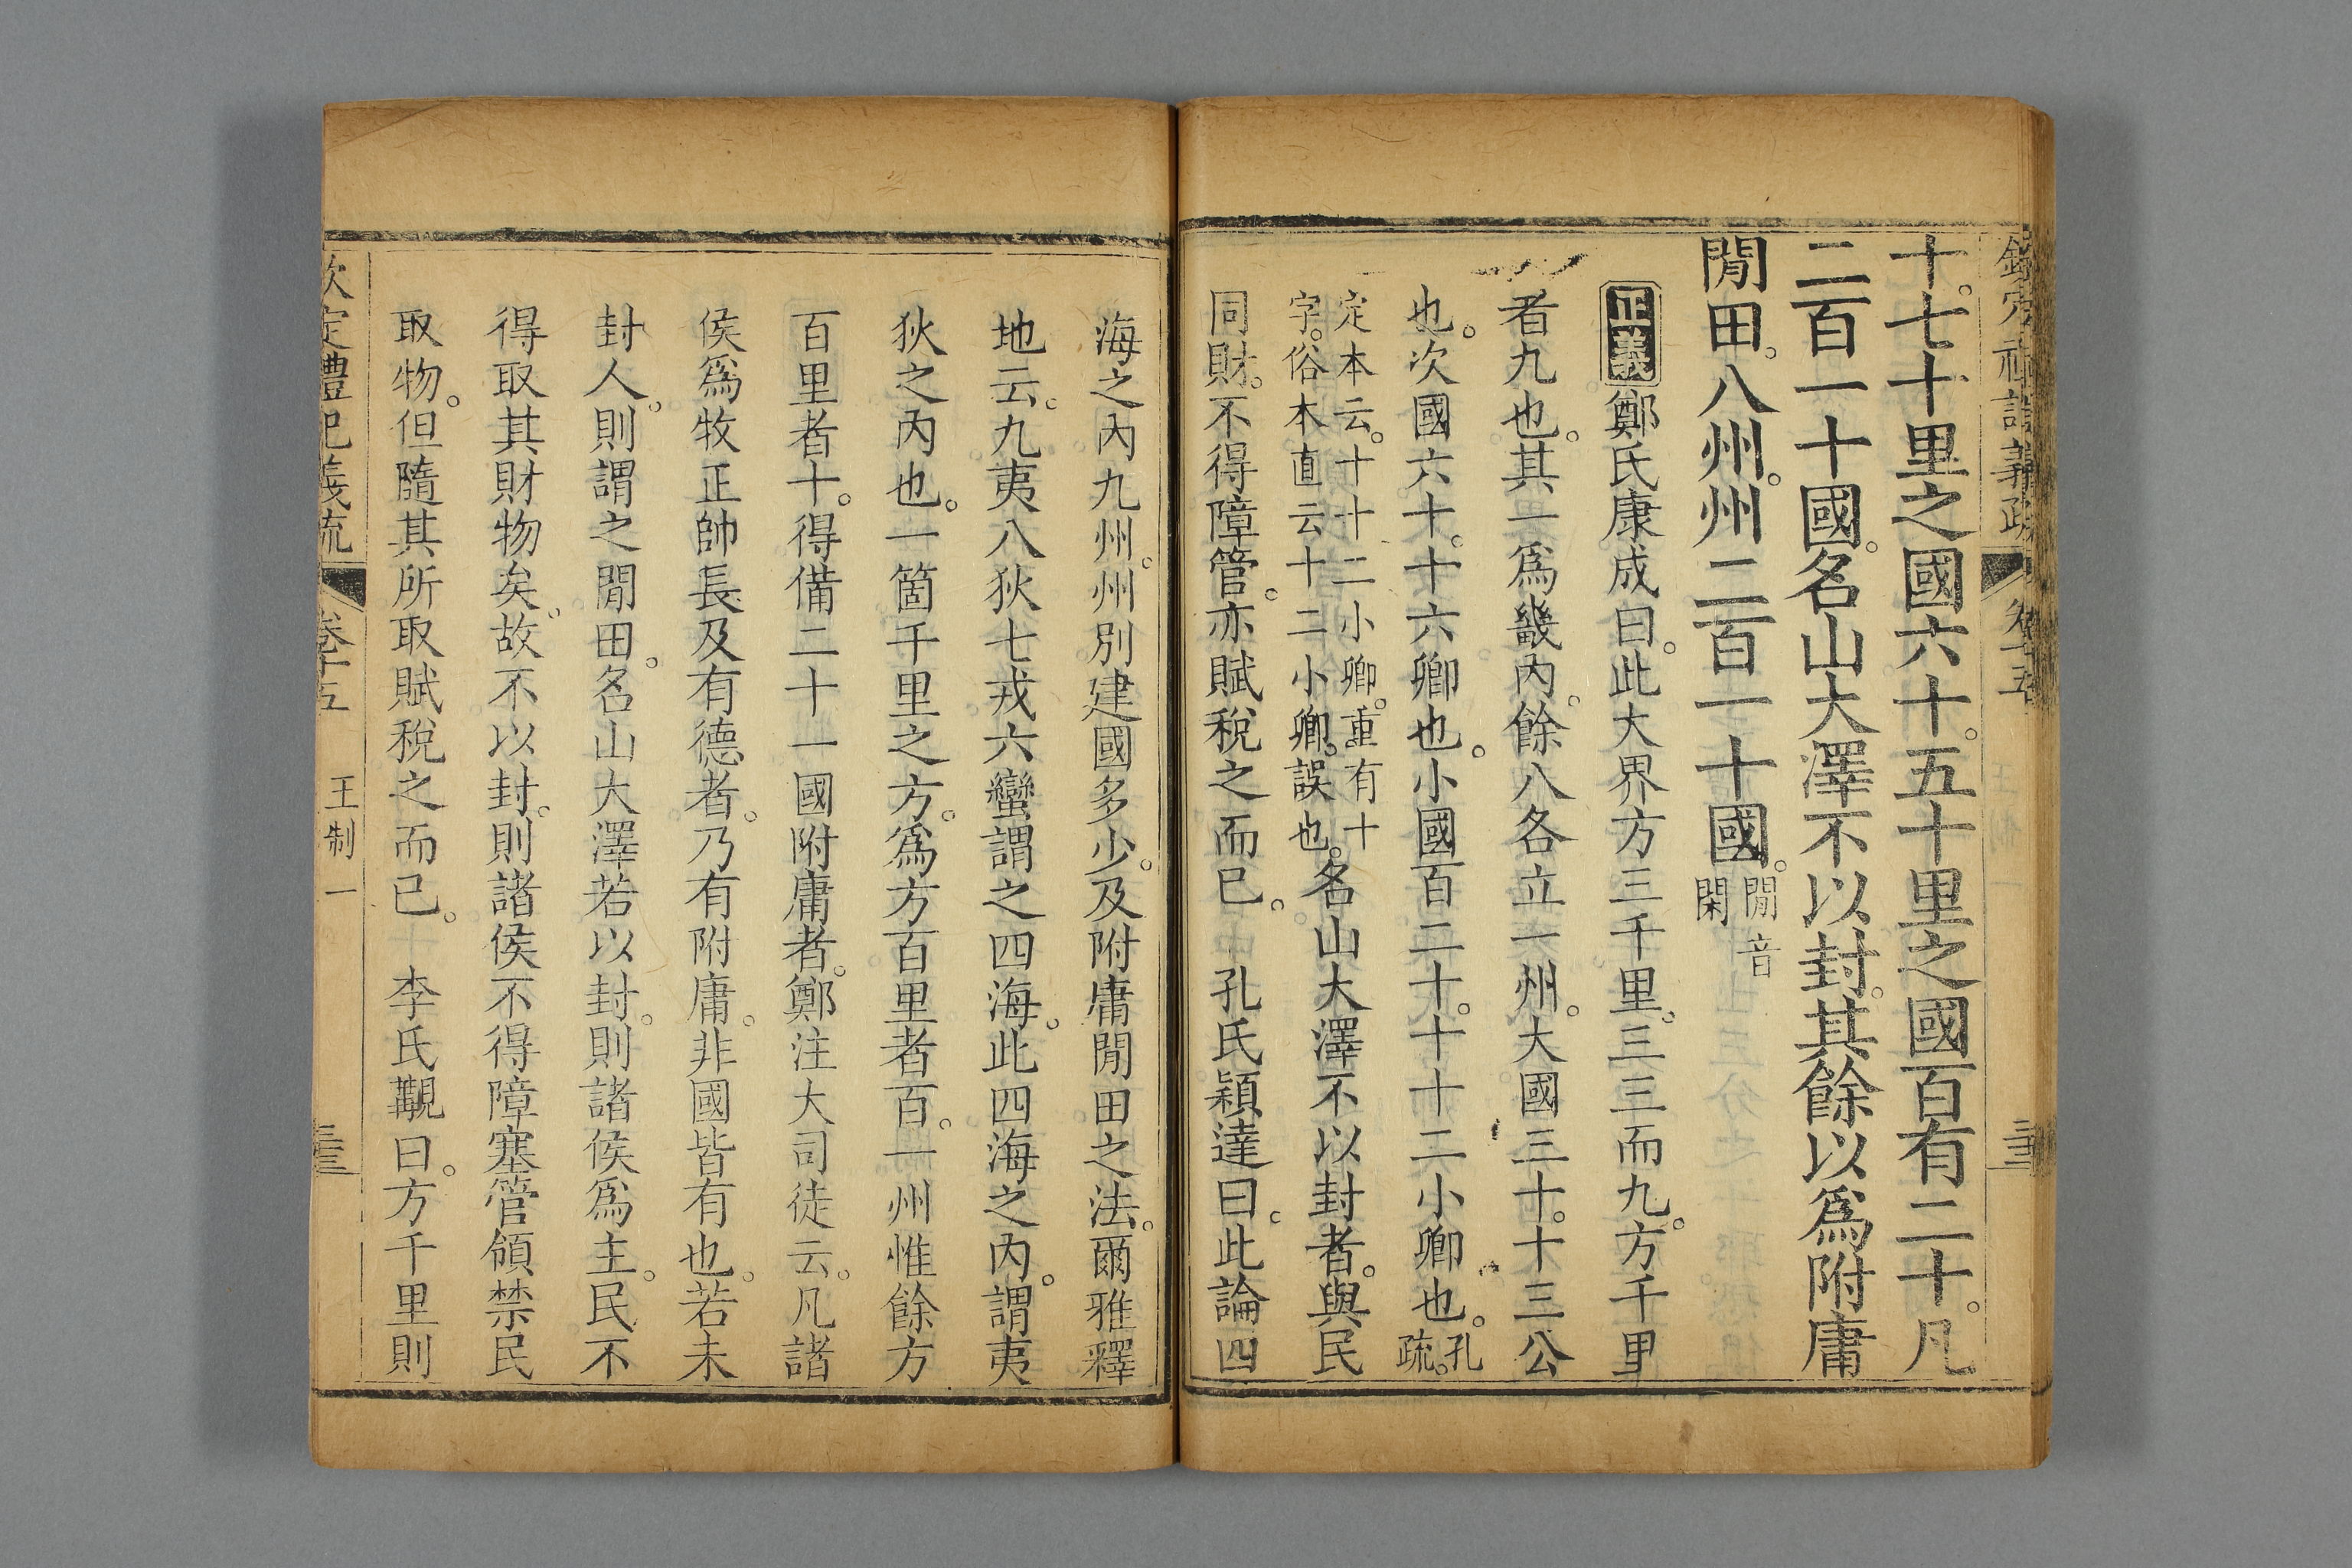 十。七十里之國六十。五十里之國百有二十。凡
二百一十國。名山大澤不以封。其餘以爲附庸
閒田。八州。州二百一十國。閒音
閑
正義鄭氏康成曰。此大界方三千里。三三而九。方千里
者九也。其一爲畿內。餘八各立一州。大國三十。十三公
也。次國六十。十六卿也。小國百二十。十十二小卿也。孔
疏。
定本云。十十二小卿。重有十
字。俗本直云十二小卿。誤也。名山大澤不以封者。與民
同財。不得障管。亦賦稅之而已。 孔氏穎達曰。此論四
海之內九州。州別建國多少。及附庸閒田之法。爾雅釋
地云。九夷八狄七戎六蠻謂之四海。此四海之內。謂夷
狄之內也。一箇千里之方。爲方百里者百。一州惟餘方
百里者十。得備二十一國附庸者。鄭注大司徒云。凡諸
侯爲牧正帥長及有德者。乃有附庸。非國皆有也。若未
封人。則謂之閒田。名山大澤若以封。則諸侯爲主。民不
得取其財物矣。故不以封。則諸侯不得障塞管領禁民
取物。但隨其所取賦稅之而已。 李氏覯曰。方千里則
欽定禮記義疏 卷十五 王制一 三三